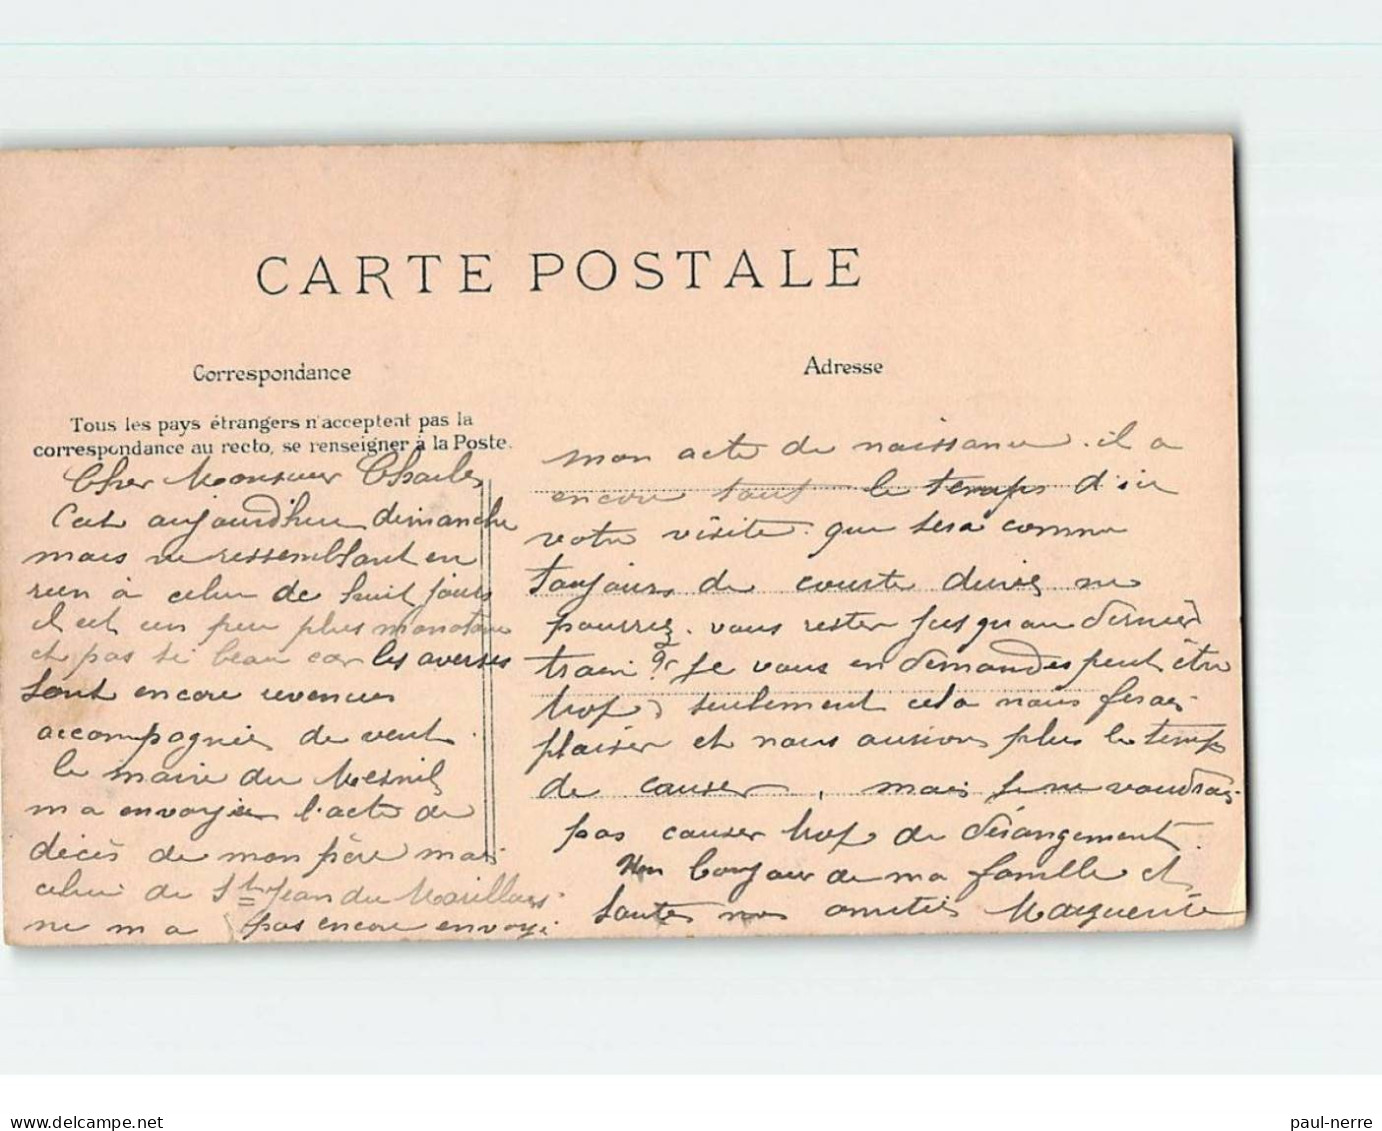 CARTE POSTALE
Correspondance
Tous les pays étrangers n'acceptent pas la
correspondance au recto, se renseigner à la Poste.
Cher Monsieur Charles
C'est aujourd'hui dimanche
mais ne ressemblant en
rien à celui de huit jours
il est un peu plus monotone
et pas si beau car les averses
sont encore revenues
accompagnées de vent.
le maire du Mesnil
m'a envoyer l'acte de
décès de mon père mais
celui de St Jean du
ne m'a pas encore envoyé
Adresse
mon acte de naissance. il a
encore tout le temps d'ici
votre visite. que sera comme
toujours de courte durée ne
pourrez vous rester jusqu'au dernier
train? Je vous en demande peut être
trop, seulement cela nous ferai
plaisir et nous aurions plus le temps
de causer, mais je ne voudrais
pas causer trop de dérangement.
Un bonjour de ma famille et
toutes nos amitiés Marguerite
delcampe.net
paul-nerre